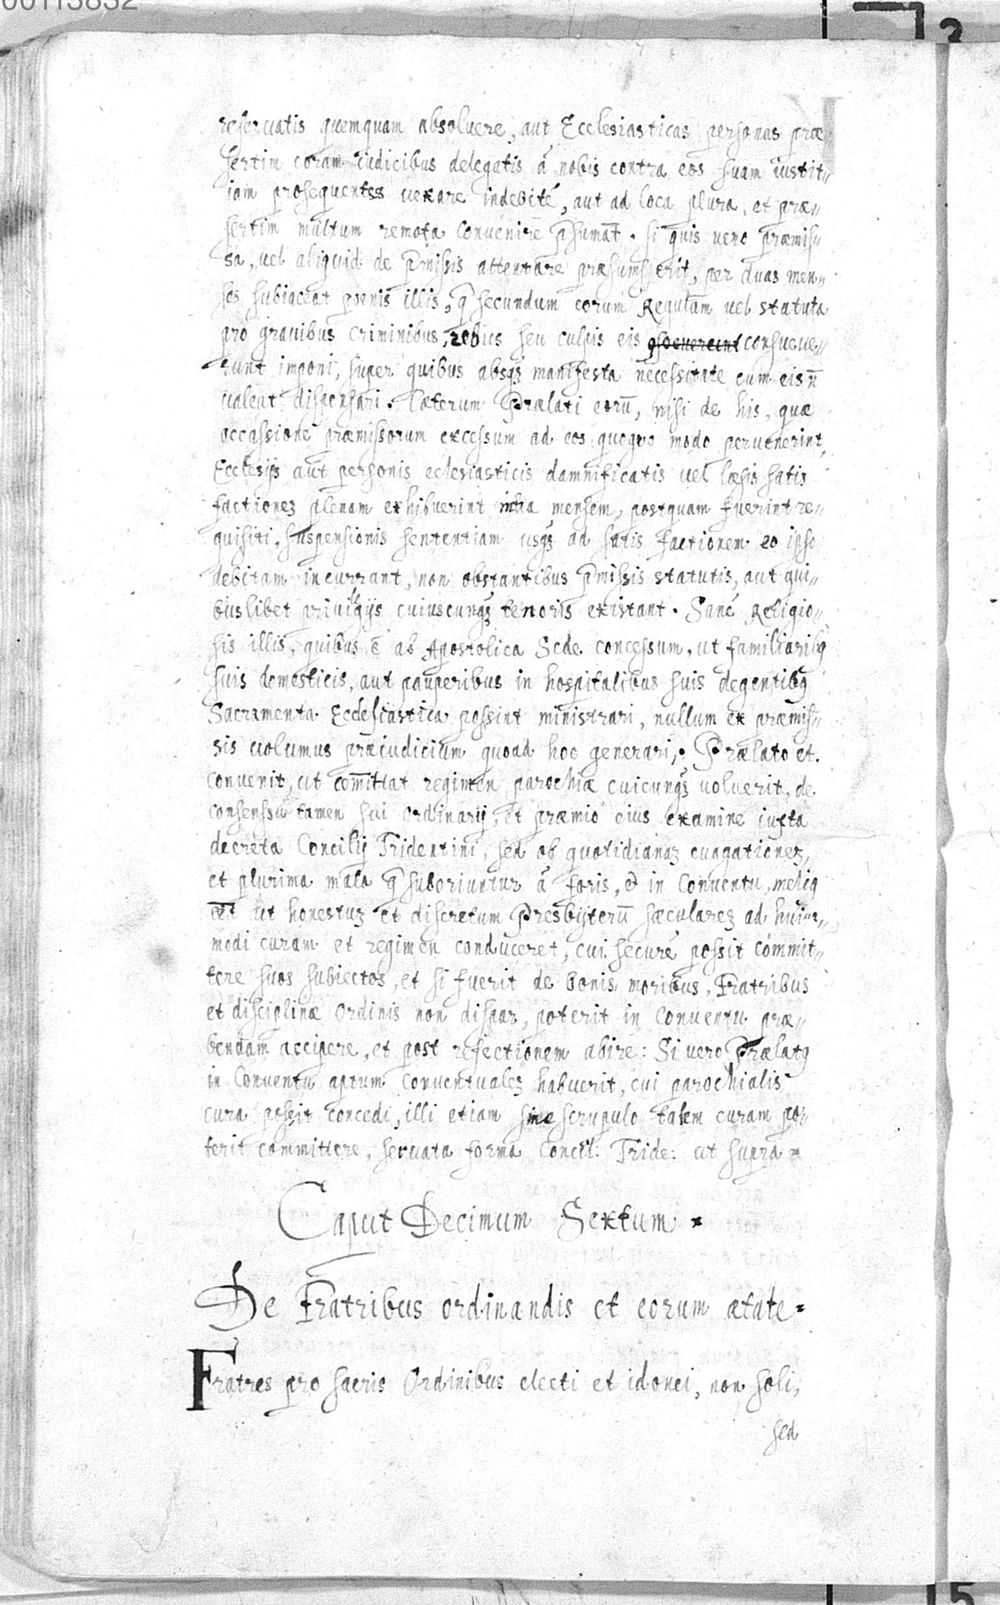 00113832
reseruatis quemquam absoluere, aut Ecclesiasticas personas præ„
sertim coram iudicibus delegatis á nobis contra eos suam iustit„
iam prosequentes uexare indebité, aut ad loca plura, et præ„
sertim multum remota conuenire p̃sumãt. si quis uero præmis„
sa, uel aliquid de p̃missis attentare præsumserit, per duas men„
ses subiaceat pœnis illis, q̃ secundum eorum Regulam uel statuta
pro grauibus criminibus, seu culpis eis consueue„
runt imponi, super quibus absq; manifesta necessitate cum eis ñ
ualeat dispensari. Cæterum Prælati eorũ, nisi de his, quæ
occassione præmissorum excessum ad eos quoquo modo peruenerint,
Ecclesijs aut personis eclesiasticis damnificatis uel læsis satis
factionez plenam exhibuerint intra mensem, postquam fuerint re„
quisiti, suspensionis sententiam usq; ad satis factionem eo ipso
debitam incurrant, non obstantibus p̃missis statutis, aut qui„
buslibet priuilegijs cuiuscunq; tenoris existant. Sané Religio„
sis illis, quibus ẽ ab Agostolica Sede concessum, ut familiarib9
suis domesticis, aut pauperibus in hospitalibus suis degentib9
Sacramenta Ecclesiastica possint ministrari, nullum ex præmis„
sis uolumus præiudicium quoad hoc generari. Prælato et
conuenit, ut com̃ittat regimen parochiæ cuicunq; uoluerit, de
consensu tamen sui ordinarij, et præmio eius examine iuxta
decreta Concilij Tridentini, sed ob quotidianas euagationez,
et plurima mala q̃ suboriuntur á foris, & in Conuentu, meli9
ẽet ut honestuz et discretum Presbyterũ sæcularez ad huius„
modi curam et regimen conduceret, cui securé possit commit„
tere suos subiectos, et si fuerit de bonis moribus, Fratribus
et disciplinæ Ordinis non dispar, poterit in Conuentu præ„
bendam accipere, et post refectionem abire: Si uero Prælat9
in Conuentu aptum conuentualez habuerit, cui parochialis
cura possit concedi, illi etiam sine scrupulo talem curam po„
terit committere, seruata forma Concil: Tride: ut supra
Caput Decimum Sextum
De Fratribus ordinandis et eorum ætate
Fratres pro sacris Ordinibus electi et idonei, non soli,
sed